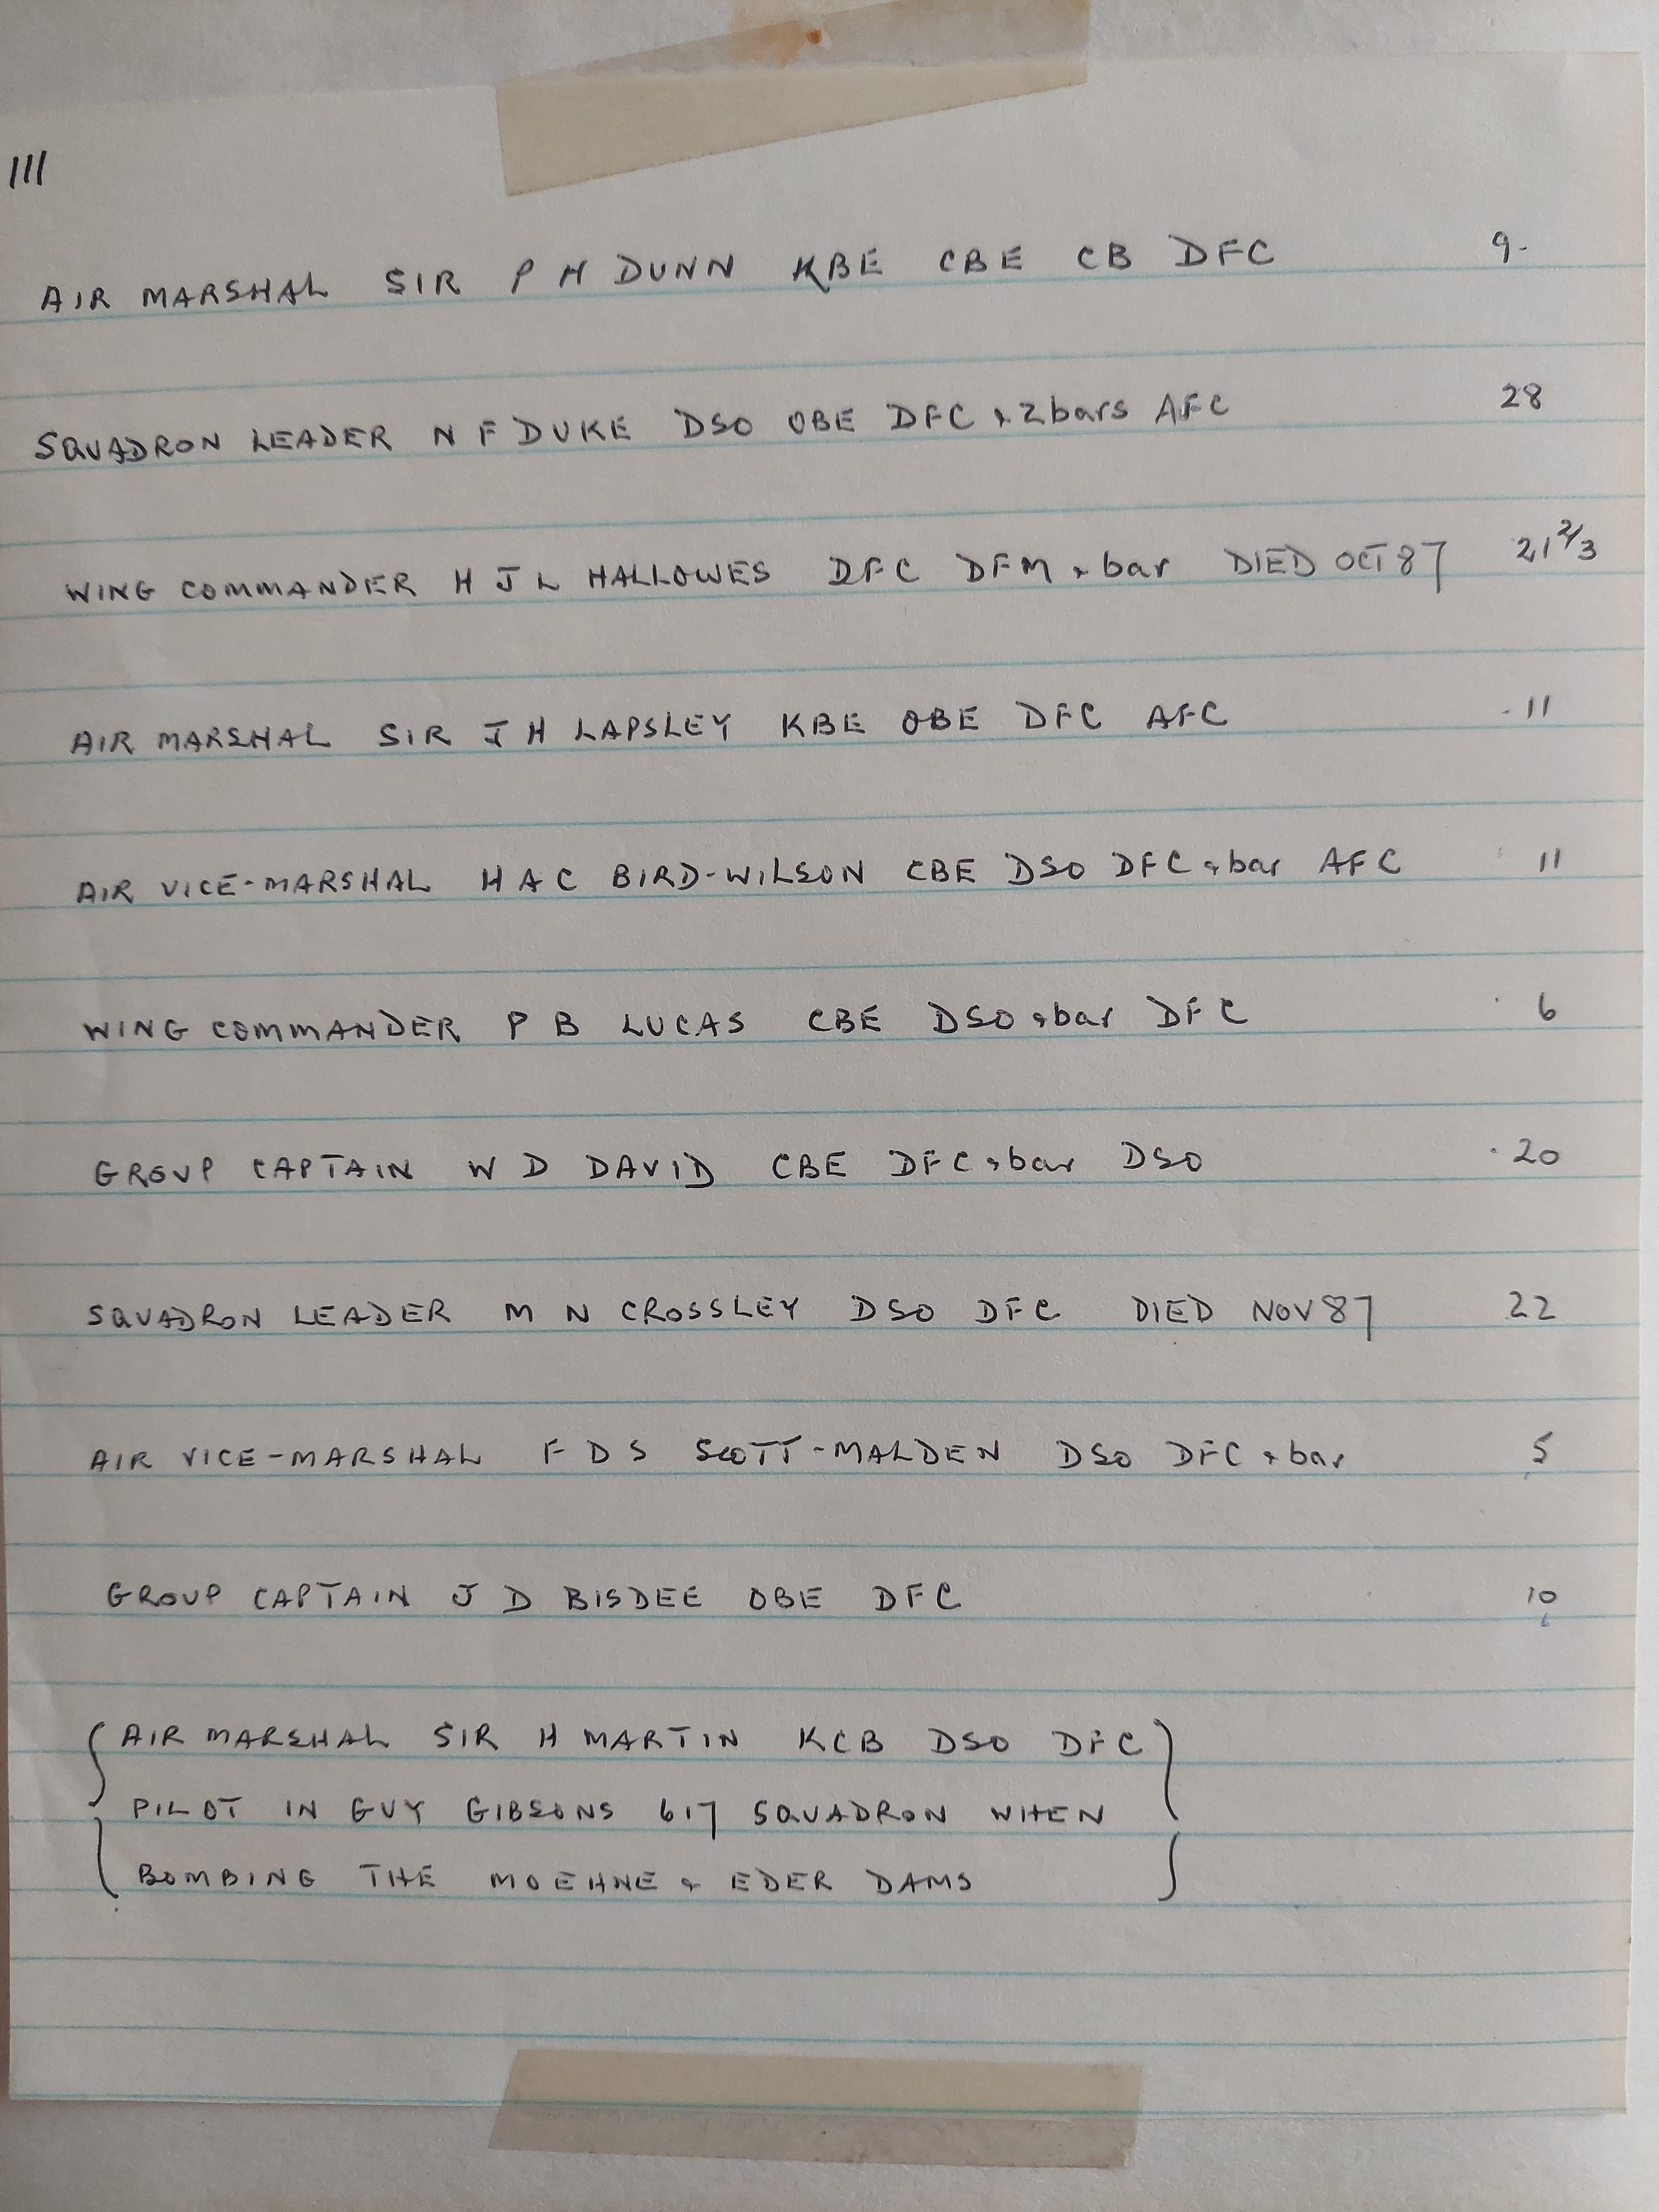 III
AIR MARSHAL SIR P H DUNN KBE CBE CB DFC 9
SQUADRON LEADER N F DUKE DSO OBE DFC & 2 bars AFC 28
WING COMMANDER H J L HALLOWES DFC DFM & bar DIED OCT 87 21 2/3
AIR MARSHAL SIR J H LAPSLEY KBE OBE DFC AFC 11
AIR VICE-MARSHAL H A C BIRD-WILSON CBE DSO DFC & bar AFC 11
WING COMMANDER P B LUCAS CBE DSO & bar DFC 6
GROUP CAPTAIN W D DAVID CBE DFC & bar DSO 20
SQUADRON LEADER M N CROSSLEY DSO DFC DIED NOV 87 22
AIR VICE-MARSHAL F D S SCOTT-MALDEN DSO DFC & bar 5
GROUP CAPTAIN J D BISDEE OBE DFC 10
AIR MARSHAL SIR H MARTIN KCB DSO DFC
PILOT IN GUY GIBSONS 617 SQUADRON WHEN
BOMBING THE MOEHNE & EDER DAMS